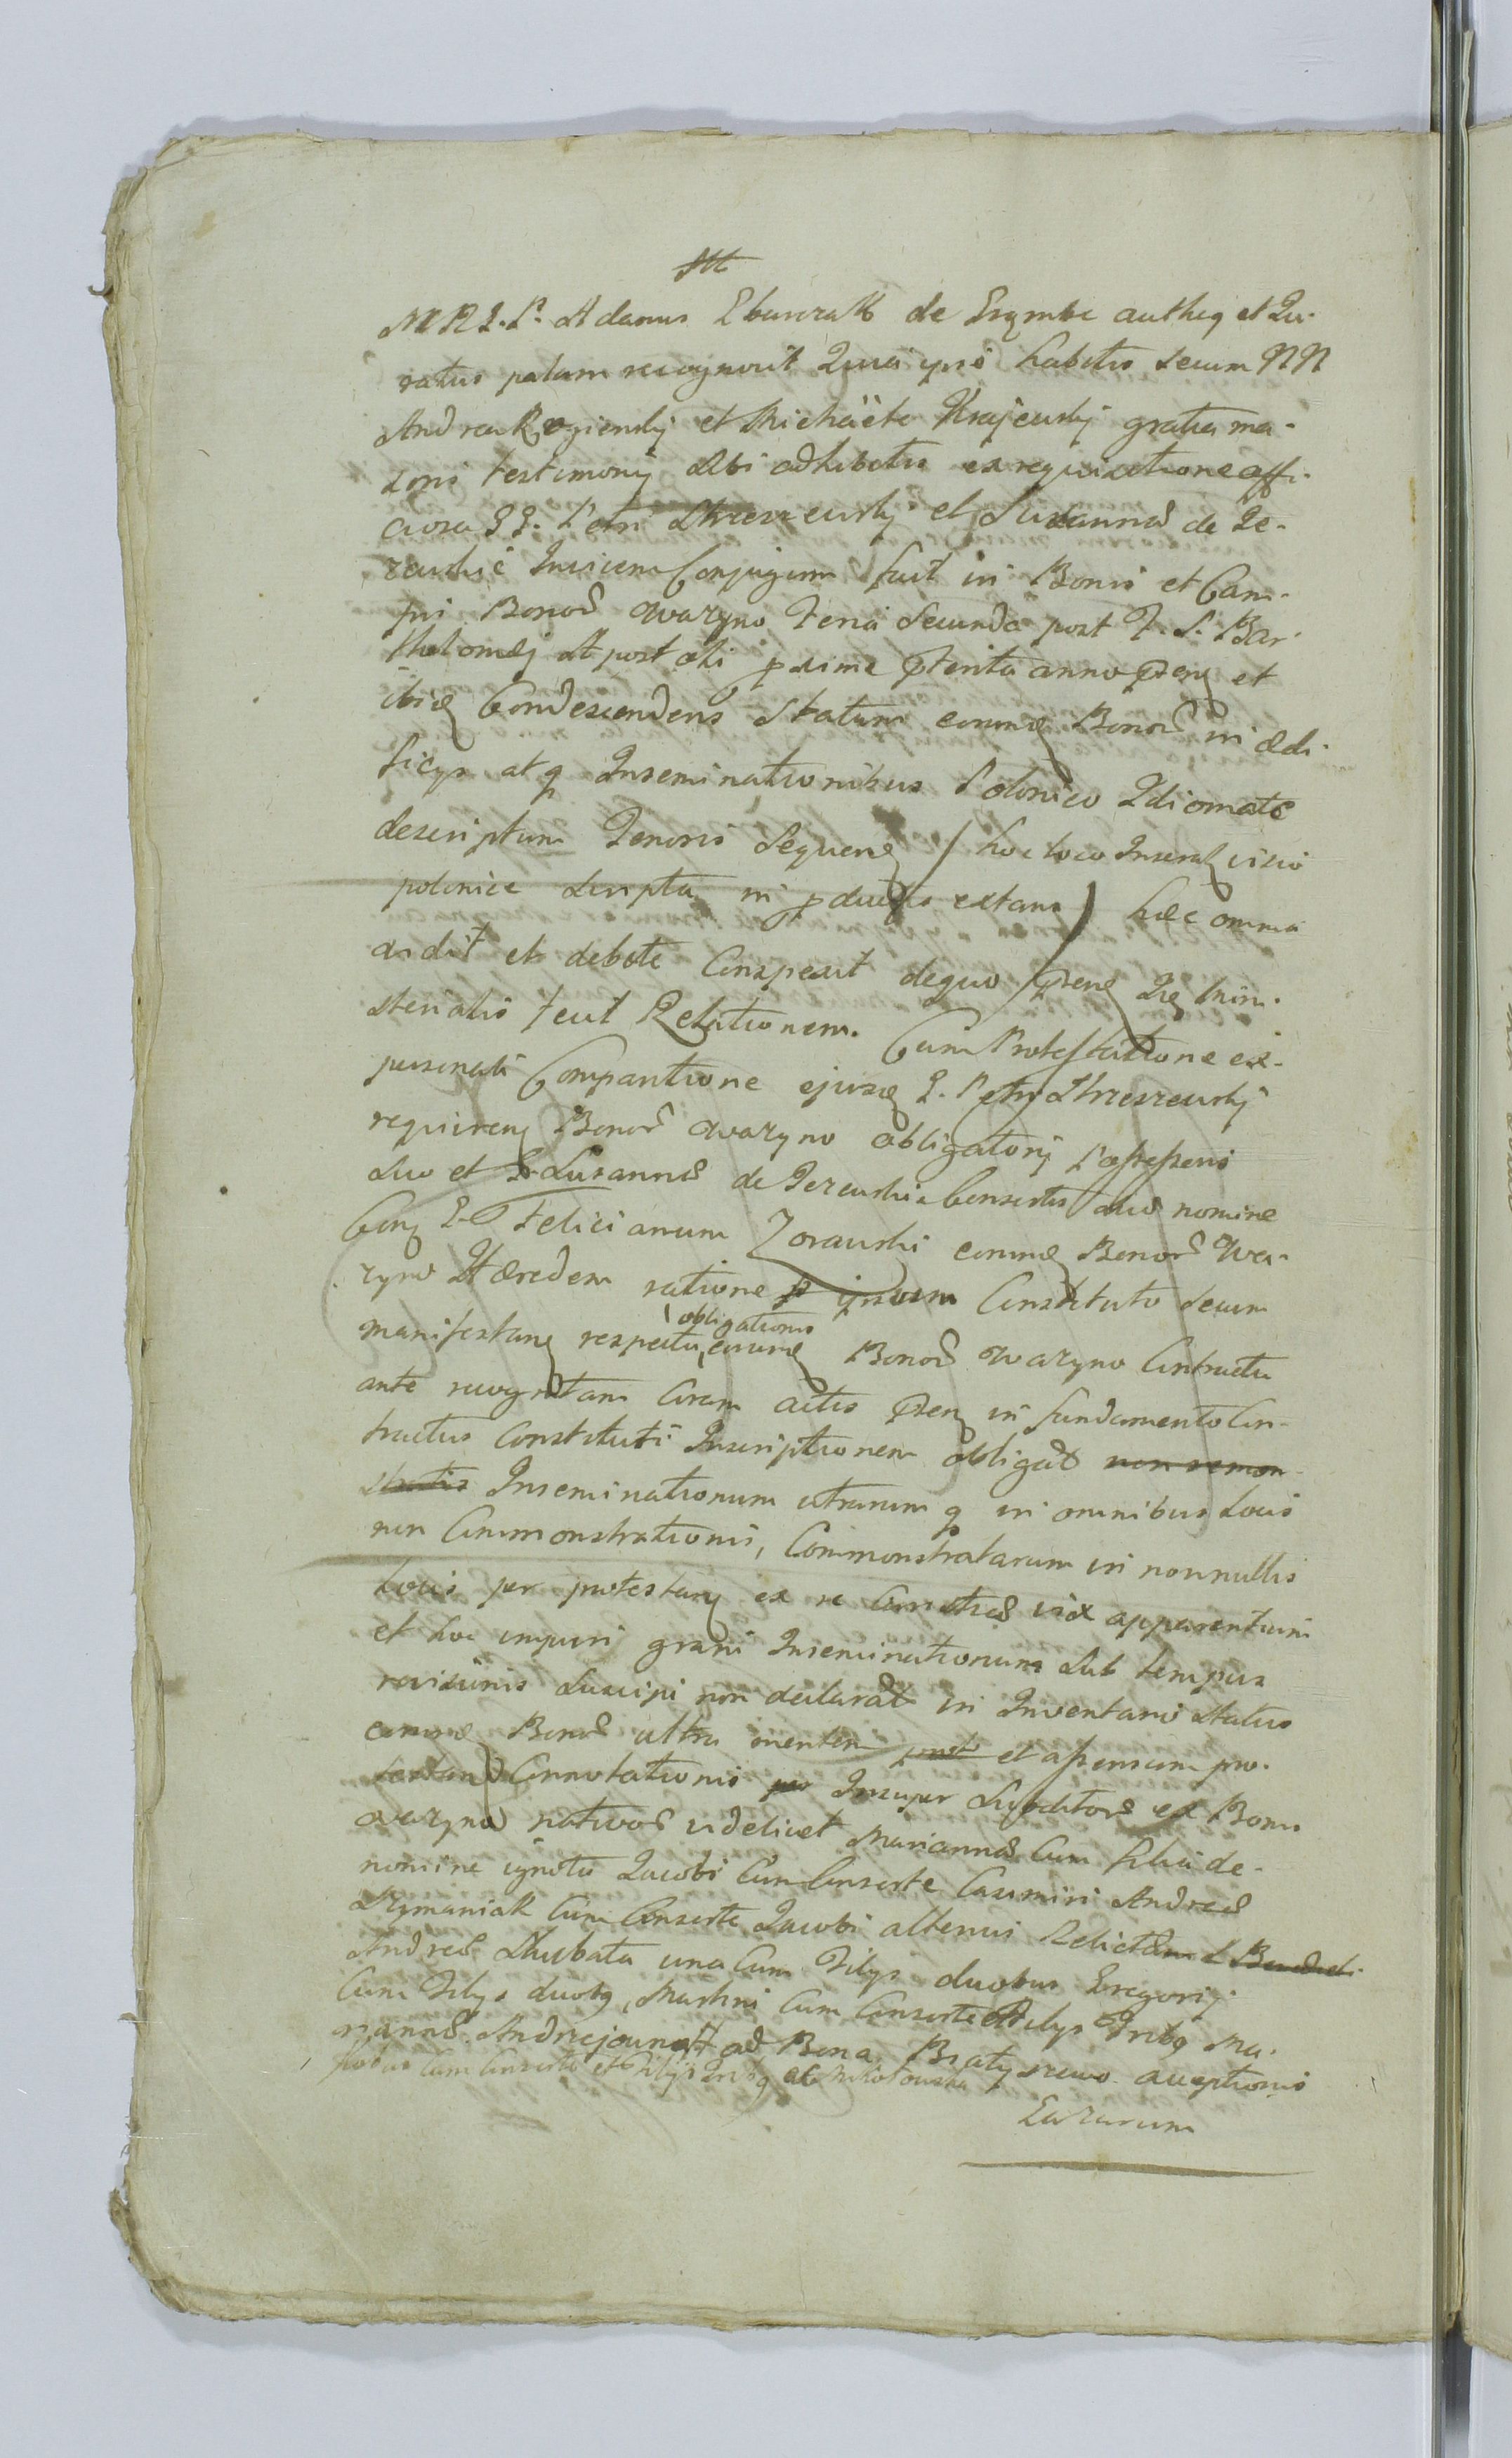 M R I. P. Adamus Ebuwalt de Grzmbe autheq et Ju-
ratus palam recognovit Quia ipse habitis secum NN
Andrea et Michäele Krajewskij gratia ma-
joris testimonij sibi adhibitis ex requisitione offi-
ciosa GG. Petri Skrzeszewskij et Susannæ de Je-
zewskie Invicem Conjugum fuit in Bonis et Cam-
pis Bonor Wazyno Feria Secunda post F. S. Bar-
tholomæj Apostoli pxime pterita anno pren et
ibiq Condescendens Statum eorund Bonor in ædi-
ficijs atq Inseminationibus Polonico Idiomate
descriptum Tenoris Sequen / hoc loco Inserat visio
polonice scripta in pductis extans) hæc omnia
vidit et debite Conspexit de quo pren Mini-
sterialis fecit Relationem. Cum Protestatione ex
personali Comparitione ejusd G. Petrj Skrzeszewskij
requiren Bonor Wazyno obligatorij Possessoris
suo et Susannæ de Jezewskie Consortis suæ nomine
Con G. Felicianum Zorawski eorund Bonor Wa-
zyno Hæredem ratione ipsorum Constituto secum
manifestan respectu obligationis eorund Bonor Wazyno Contractu
ante recognitam Coram actis pren in fundamento Con-
tractus Constituti Inscriptionem obligat non remon-
stratis Inseminationum utrarumq in omnibus Locis
non Commonstrationis, Commonstratarum in nonnullis
Locis per protestan ex re vix apparentium
et hoc impuri grani Inseminationum Sub tempus
revisionis Suscipi non declarat in Inventario Status
eorund Bonor ultra mentem et assensum pro-
testan Connotationis Insuper Subditor ex Bonis
Wazyno nativor videlicet Mariannæ Cum filia de
nomine ignota Jacobi Cum Consorte Casimiri Andreæ
Szymaniak Cum Consorte, Jacobi alterius Relictæ
Andreæ Skubała una Cum Filijs duobus Gregorij
Cum Filijs duobq, Martini Cum Consorte Filijs Tribq Ma-
riannæ ad Bona Bratyszewo acceptionis
Cum Consorte et Filijs Tribq
Earum